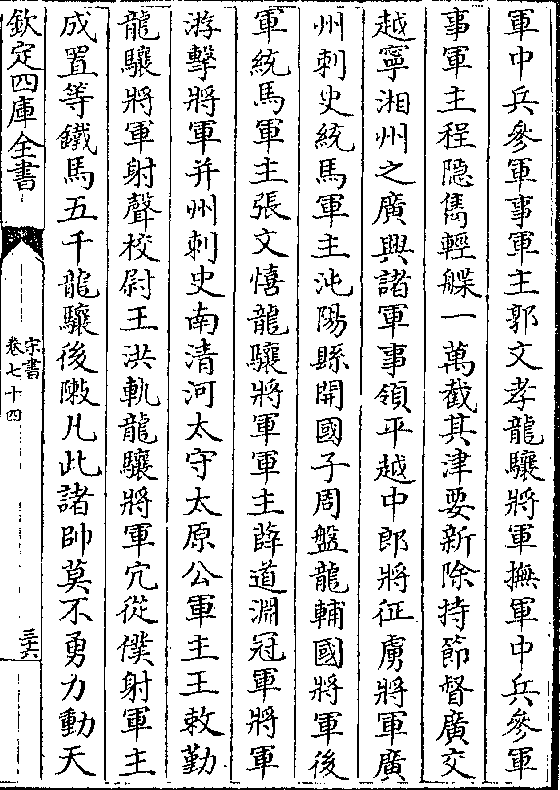 軍中兵參軍事軍主郭文孝龍驤將軍撫軍中兵參軍
事軍主程隠雋輕艓一萬截其津要新除持節督廣交
越寧湘州之廣興諸軍事領平越中郎將征虜將軍廣
州刺史統馬軍主沌陽縣開國子周盤龍輔國將軍後
軍統馬軍主張文憘龍驤將軍軍主薛道淵冠軍將軍
游擊將軍并州刺史南清河太守太原公軍主王敕勤
龍驤將軍射聲校尉王洪軌龍驤將軍冗從僕射軍主
成置等鐵馬五千龍驤後陳凡此諸帥莫不勇力動天
欽定四庫全書
宋書
卷七十四
三六